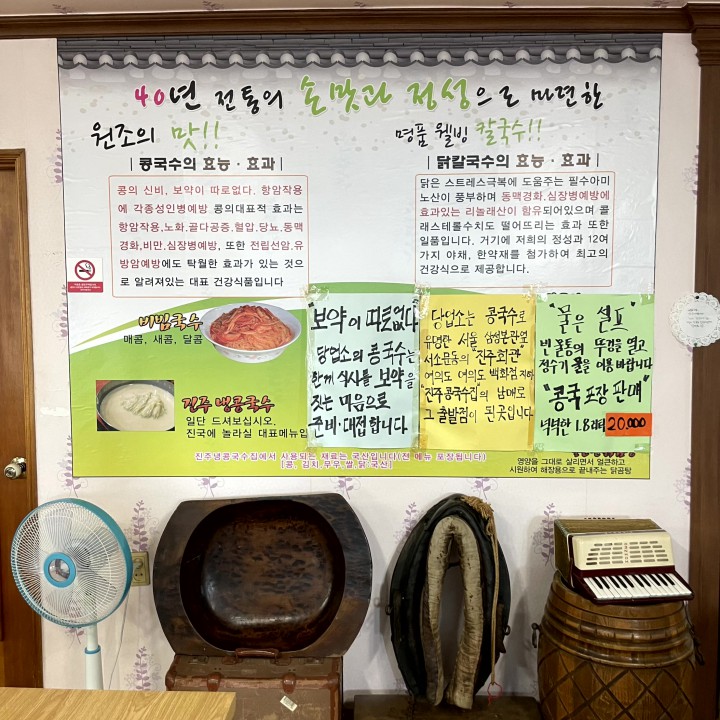 40년 전통의 손맛과 정성으로 마련한
원조의 맛!!
| 콩국수의 효능 · 효과 |
콩의 신비, 보약이 따로없다. 항암작용
에 각종성인병예방 콩의대표적 효과는
항암작용,노화,골다공증,혈압,당뇨,동맥
경화,비만,심장병예방, 또한 전립선암,유
방암예방에도 탁월한 효과가 있는 것으
로 알려져있는 대표 건강식품입니다
명품 웰빙 칼국수!!
| 닭칼국수의 효능 · 효과 |
닭은 스트레스극복에 도움주는 필수아미
노산이 풍부하며 동맥경화,심장병예방에
효과있는 리놀래산이 함유되어있으며 콜
래스테롤수치도 떨어뜨리는 효과 또한
일품입니다. 거기에 저희의 정성과 12여
가지 야채, 한약재를 첨가하여 최고의
건강식으로 제공합니다.
비빔국수
매콤, 새콤, 달콤
진주 냉콩국수
일단 드셔보십시오.
진국에 놀라실 대표메뉴입
"보약이 따로없다"
당업소의 콩국수는
함께 식사를 보약을
짓는 마음으로
준비·대접합니다
당업소는 콩국수로
유명한 서울 삼성본관옆
서소문동의 "진주회관"
여의도 여의도 백화점 지하
"진주 콩국수집"의 남매로
그 출발점이 된 곳입니다
"물은 셀프"
빈 물통의 뚜껑을 열고
정수기 물을 이용 바랍니다
"콩국 포장 판매"
넉넉한 1.8리터 20.000
진주냉콩국수집에서 사용되는 재료는 국산입니다(전 메뉴 포장됩니다)
[콩, 김치, 무우, 쌀, 닭:국산]
영양을 그대로 살리면서 얼큰하고
시원하여 해장용으로 끝내주는 닭곰탕